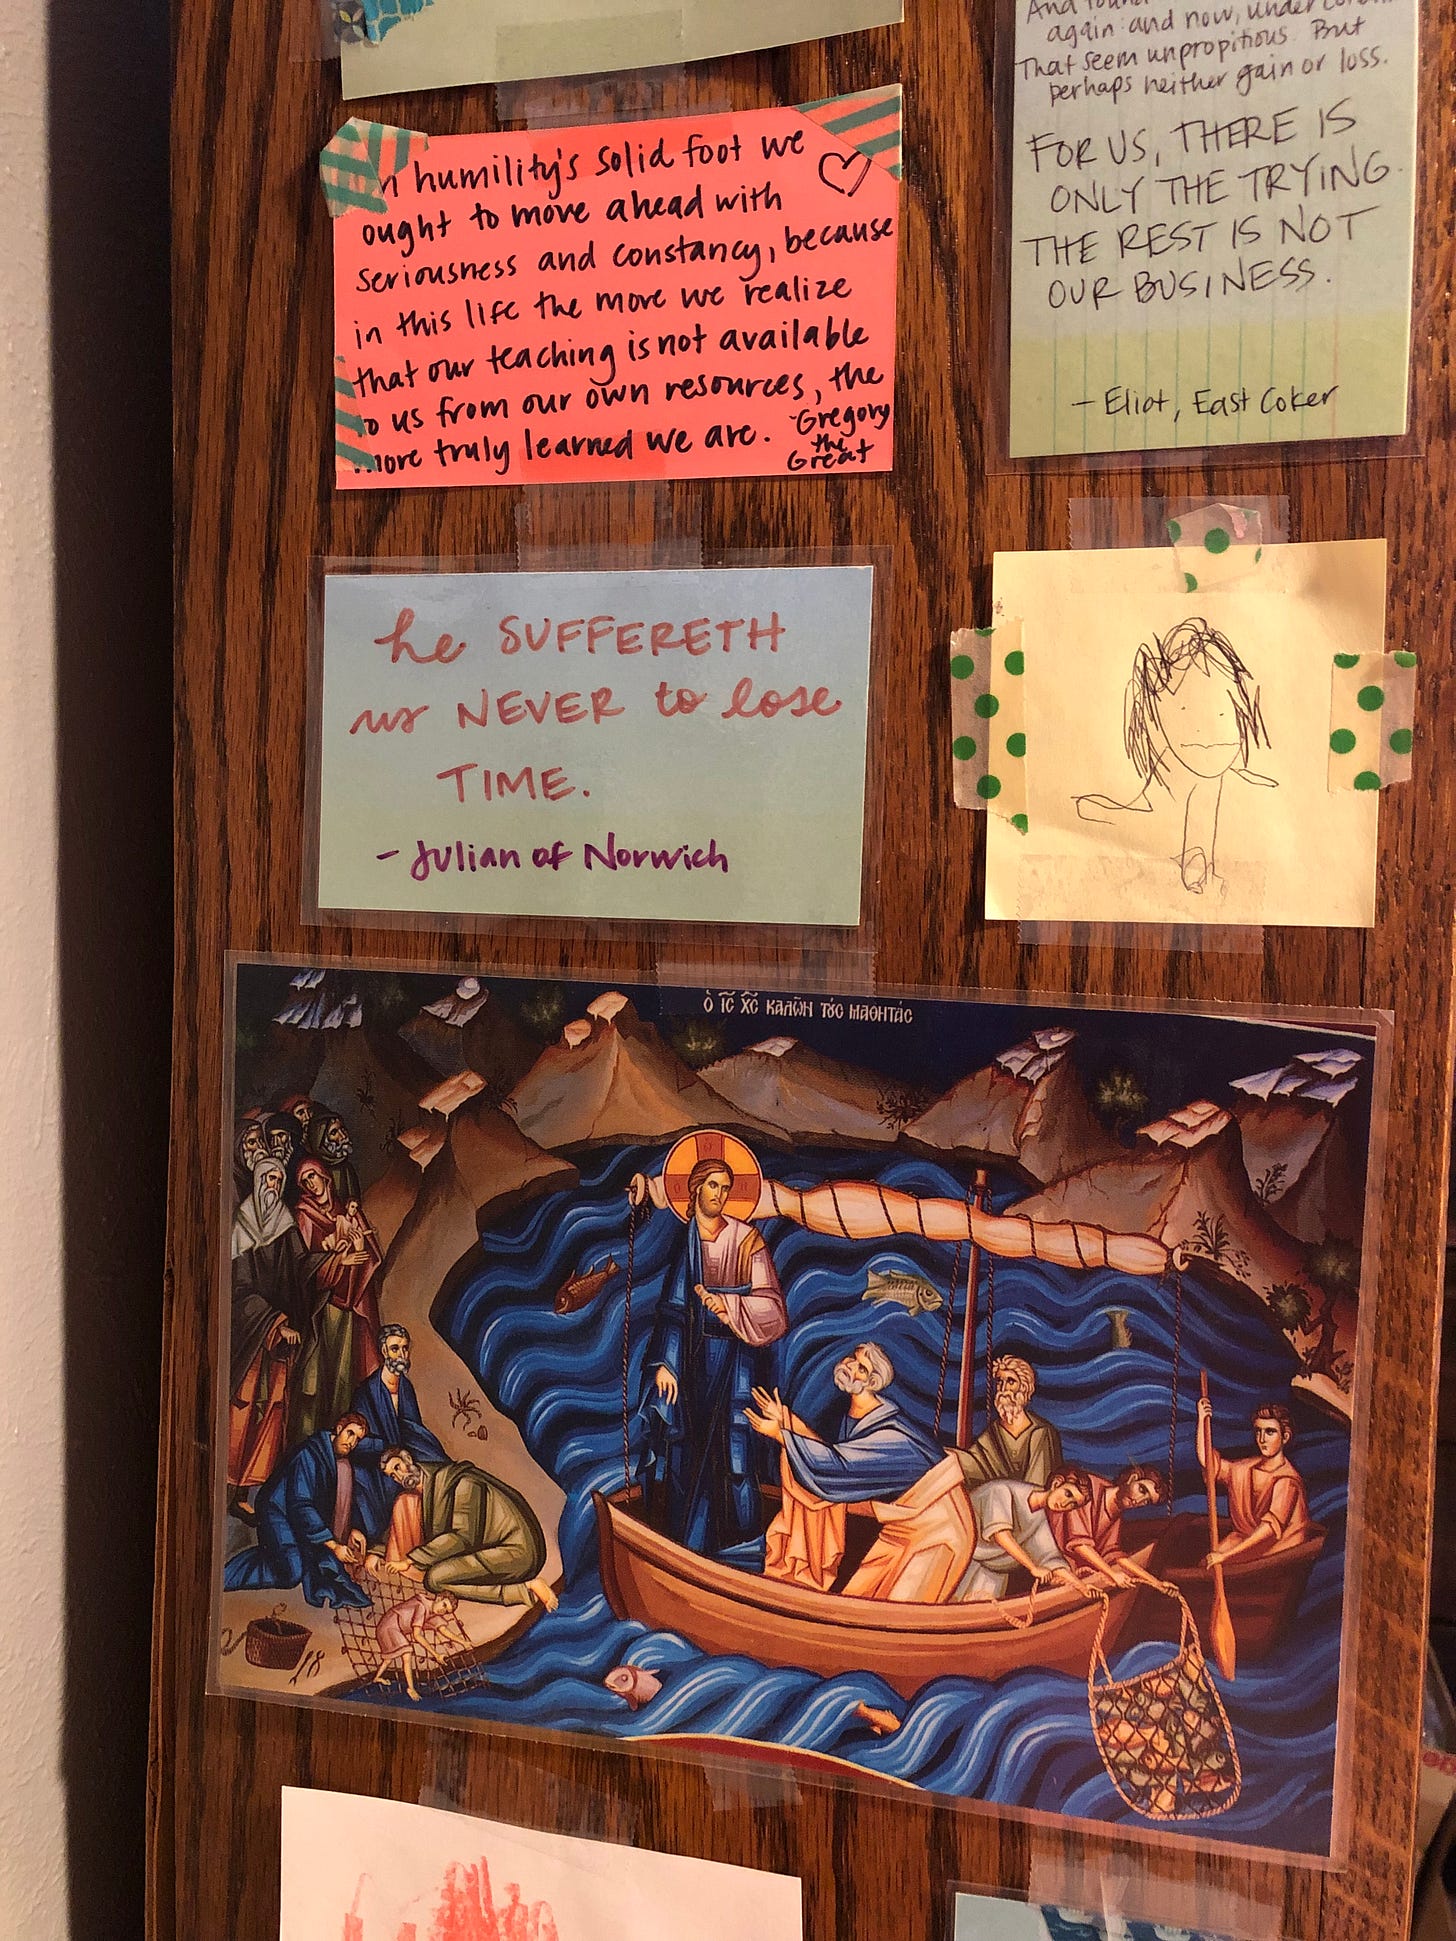 humility's solid foot we
ought to move ahead with
seriousness and constancy, because
in this life the more we realize
that our teaching is not available
to us from our own resources, the
more truly learned we are.
-Gregory
the
Great
again: and now, under
That seem unpropitious. But
perhaps neither gain or loss.
FOR US, THERE IS
ONLY THE TRYING.
THE REST IS NOT
OUR BUSINESS.
- Eliot, East Coker
he SUFFERETH
us NEVER to lose
TIME.
- Julian of Norwich
ὁ ΙC XC ΚΑΛῶΝ ΤȣC ΜΑΘΗΤάC